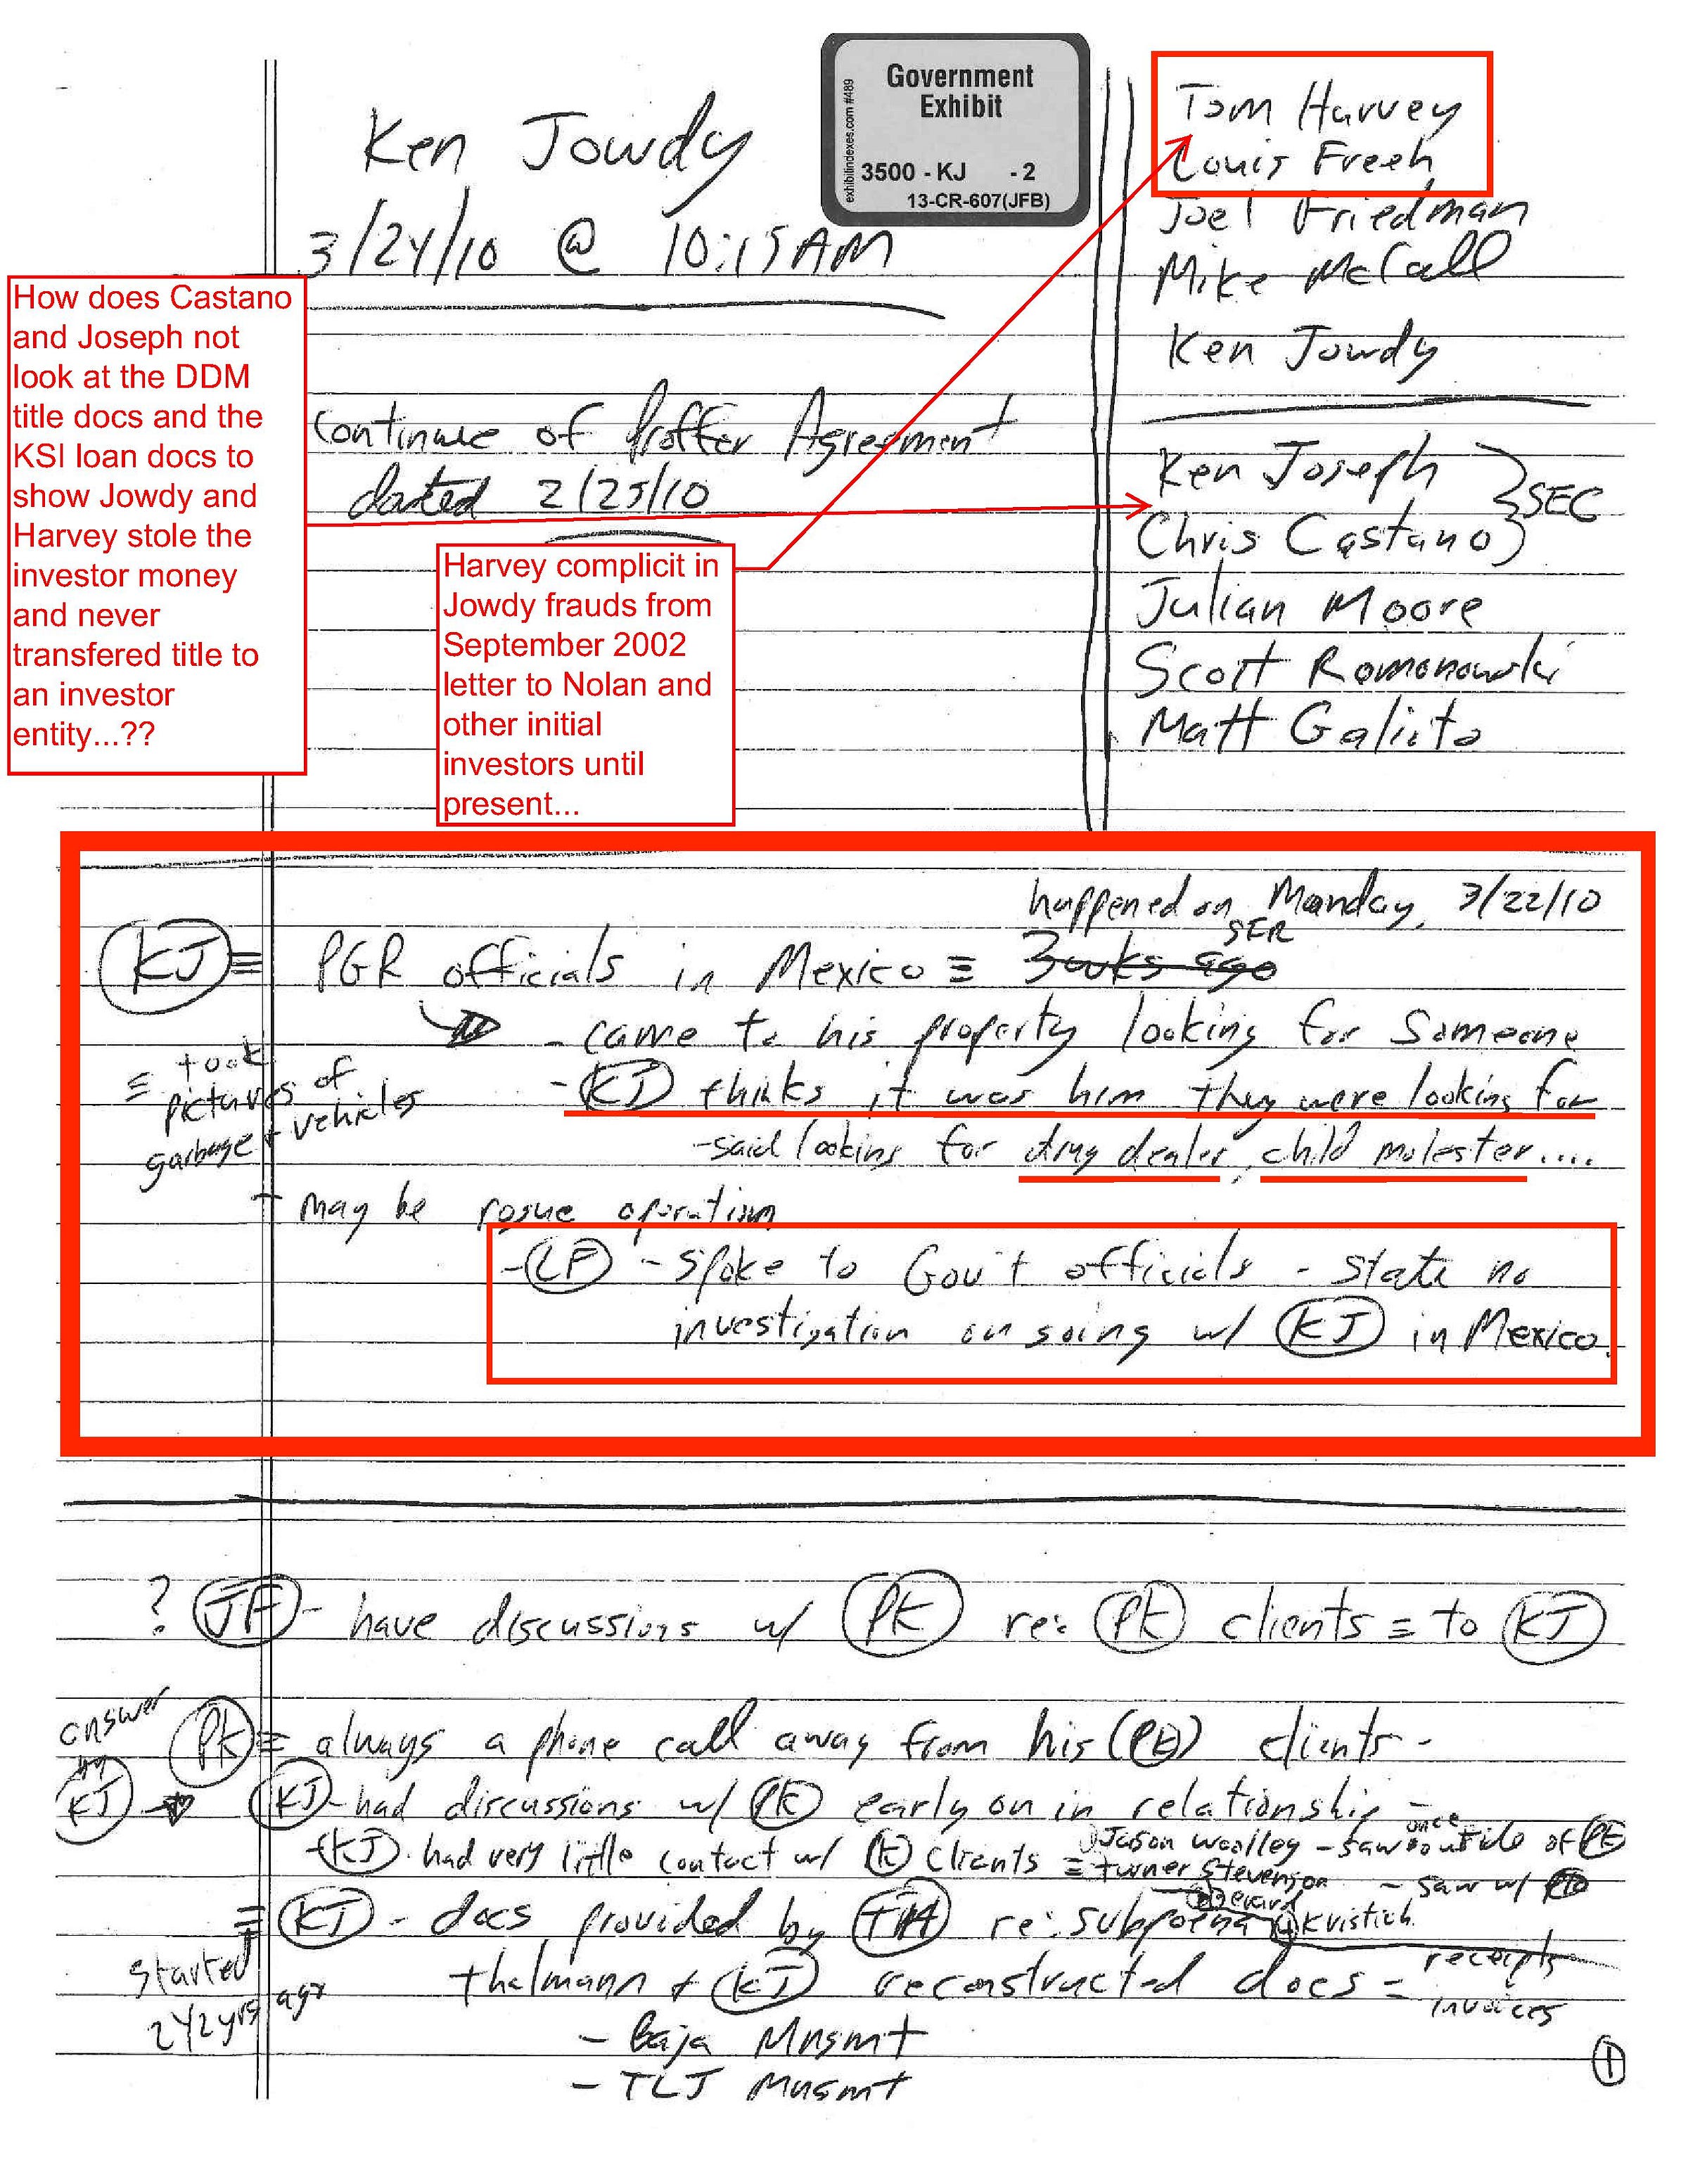 Ken Jowdy
3/24/10 @ 10:15AM
Government
Exhibit
3500 - KJ - 2
13-CR-607(JFB)
exhibitindexes.com #489
Tom Harvey
Louis Freeh
Joel Friedman
Mike McCall
Ken Jowdy
Ken Joseph
Chris Castano
} SEC
Julian Moore
Scott Romonowski
Matt Galioto
How does Castano
and Joseph not
look at the DDM
title docs and the
KSI loan docs to
show Jowdy and
Harvey stole the
investor money
and never
transfered title to
an investor
entity...??
Continue of Proffer Agreement
dated 2/25/10
Harvey complicit in
Jowdy frauds from
September 2002
letter to Nolan and
other initial
investors until
present...
happened on Monday, 3/22/10
SER
KJ ≡ PGR officials in Mexico ≡ 3 wks ago
- came to his property looking for someone
≡ took
pictures of
garbage + vehicles
- KJ thinks it was him they were looking for
- said looking for drug dealer, child molester....
- may be rogue operation
- LF - spoke to Gov't officials - state no
investigation ongoing w/ KJ in Mexico.
? JF - have discussions w/ PK re: PK clients ≡ to KJ
answer
by
KJ →
PK ≡ always a phone call away from his (PK) clients -
KJ - had discussions w/ PK early on in relationship -
- KJ had very little contact w/ PK clients ≡
Jason Woolley - saw once outside of PK
turner Stevenson - saw w/ PK
Berard
Kristich
≡ KJ - docs provided by TH re: subpoena
started
2 1/2 yrs ago
thalmann + KJ reconstructed docs = receipts
invoices
- Baja Mngmt
- TLJ Mngmt
1